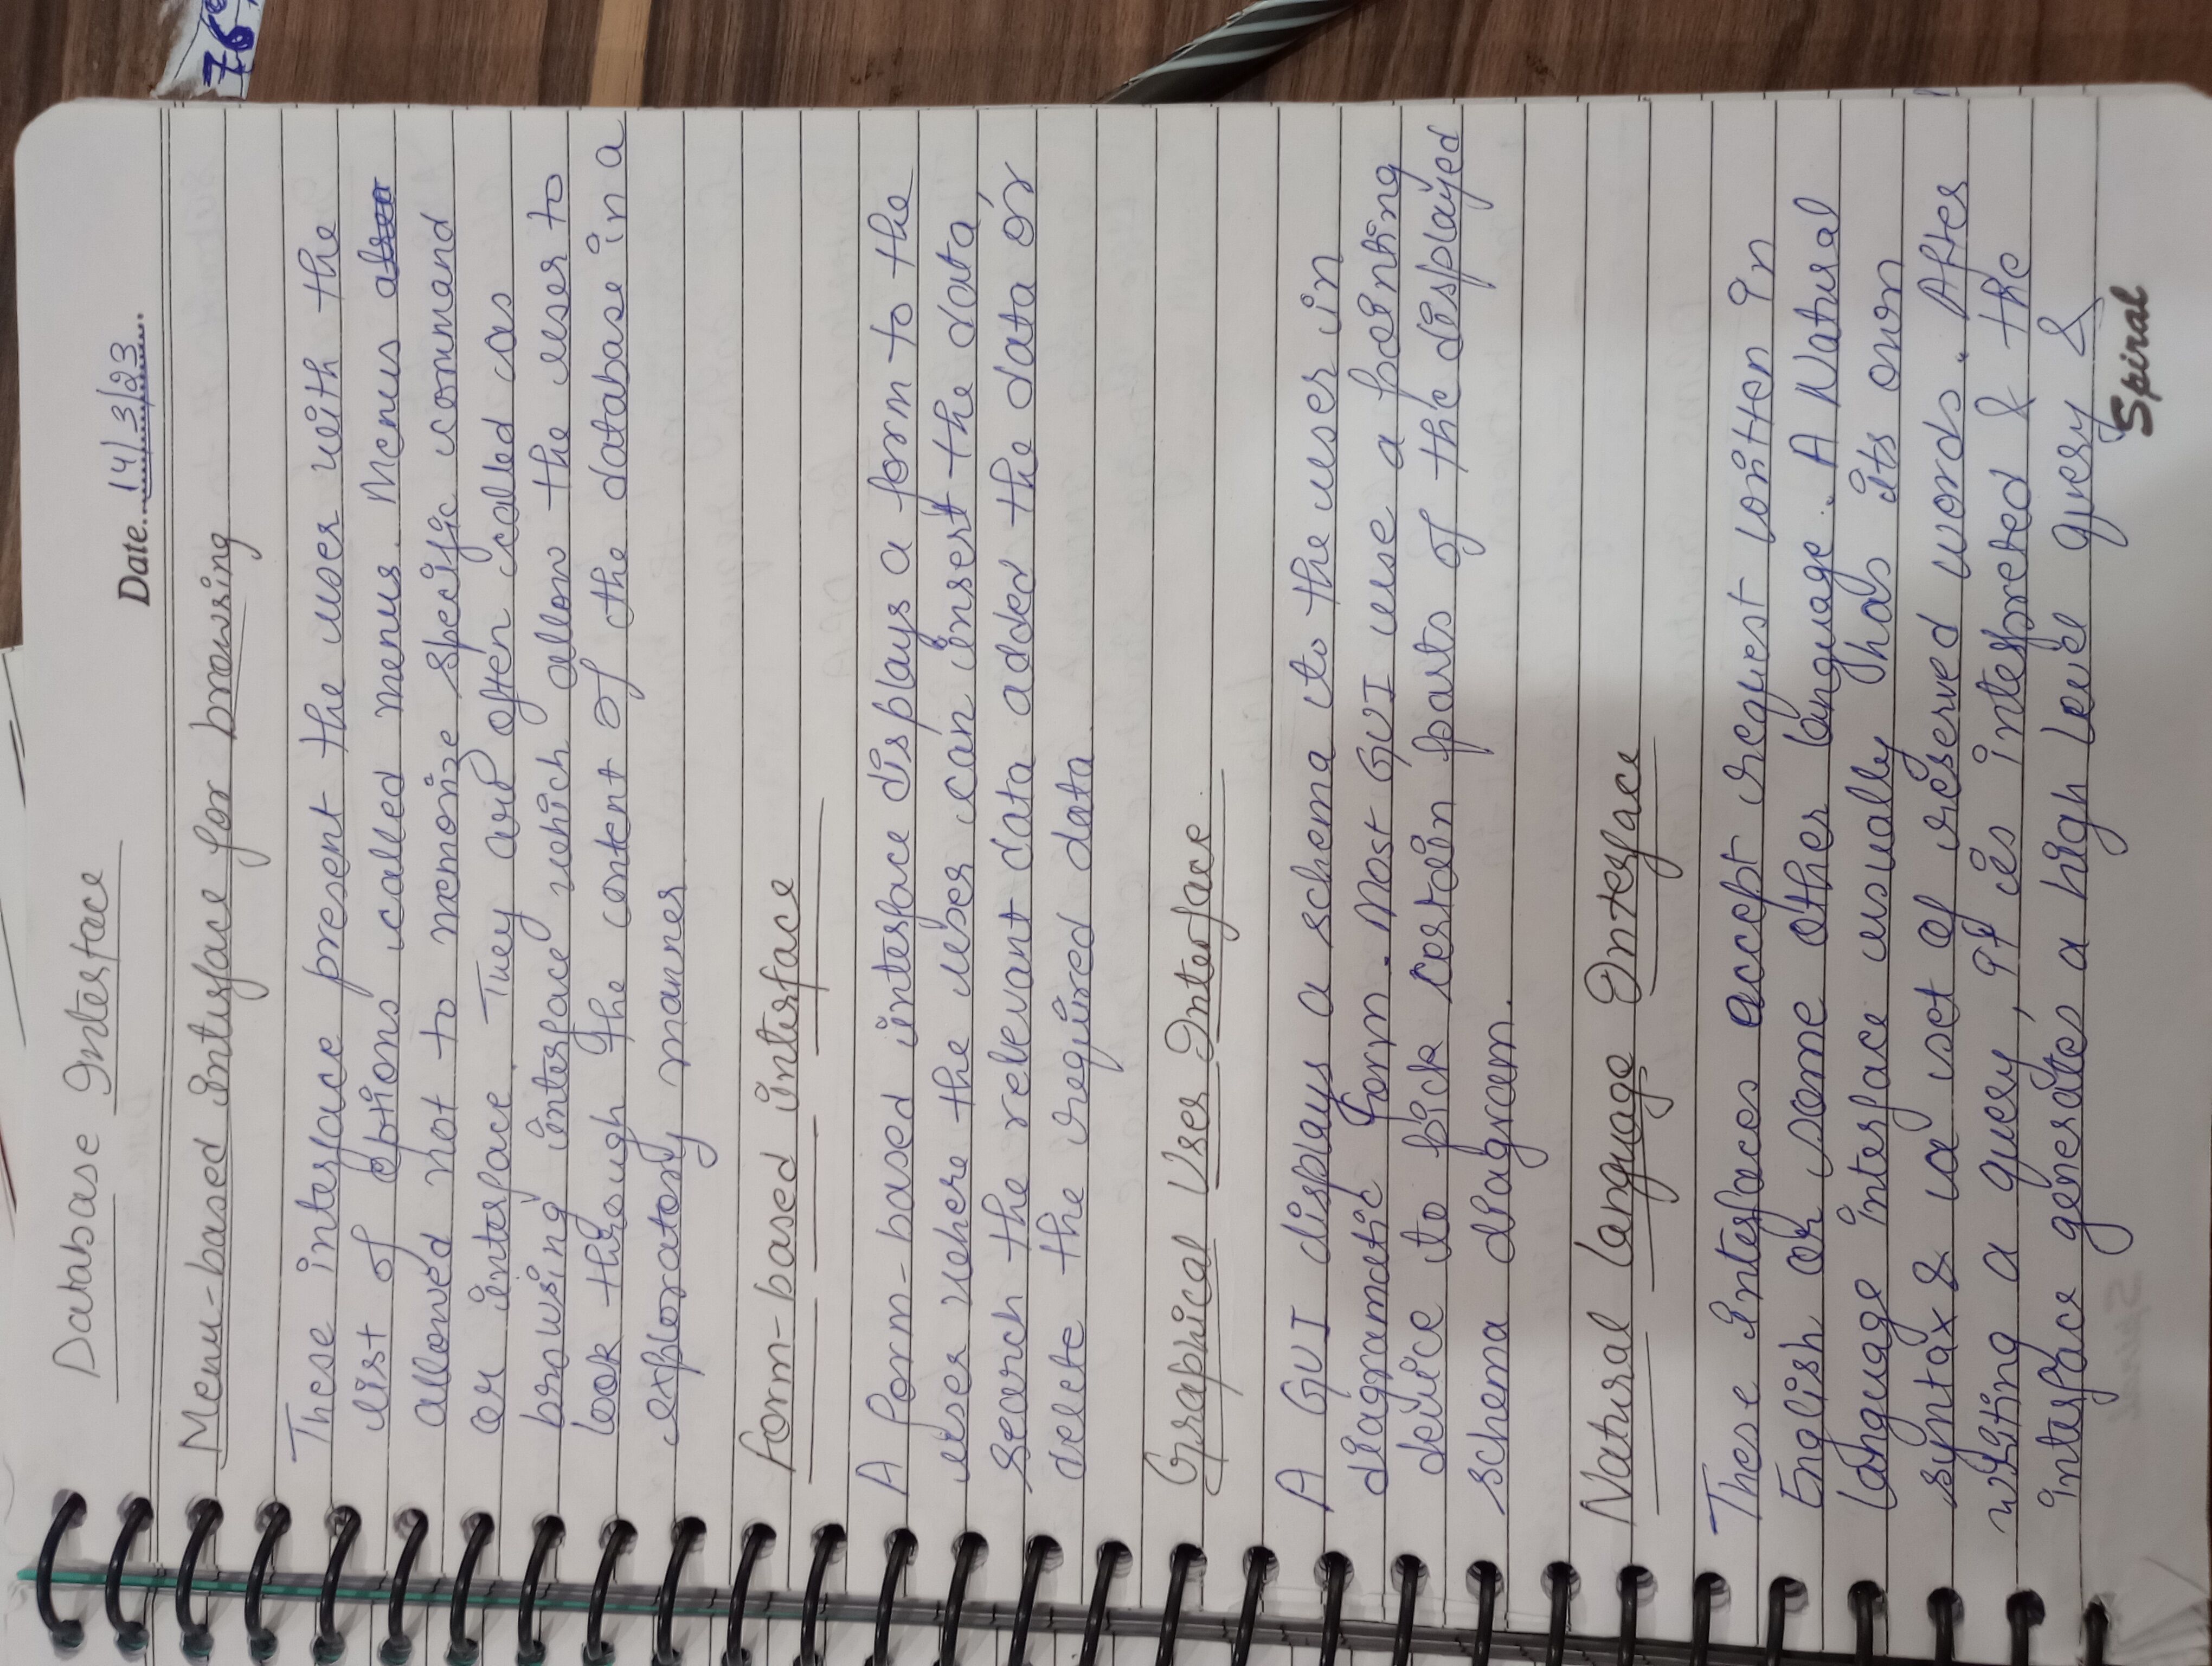 Database Interface
Date 14/3/23
Menu-based interface for browsing
76
These interface present the user with the
list of options called menus. Menus
allowed not to memorize specific command
or interface. They are often called as
browsing interface which allow the user to
look through the content of the database in a
exploratory manner
form-based interface
A form-based interface displays a form to the
user where the user can insert the data,
search the relevant data added the data or
delete the required data.
Graphical User Interface.
A GUI displays a schema to the user in
diagramatic form. Most GUI use a pointing
device to pick certain parts of the displayed
schema diagram.
Natural language Interface
These interfaces accept request written in
English or some other language. A Natural
language interface usually has its own
syntax & a set of reserved words. After
writing a query, it is interpreted & the
interface generates a high level query &
Spiral